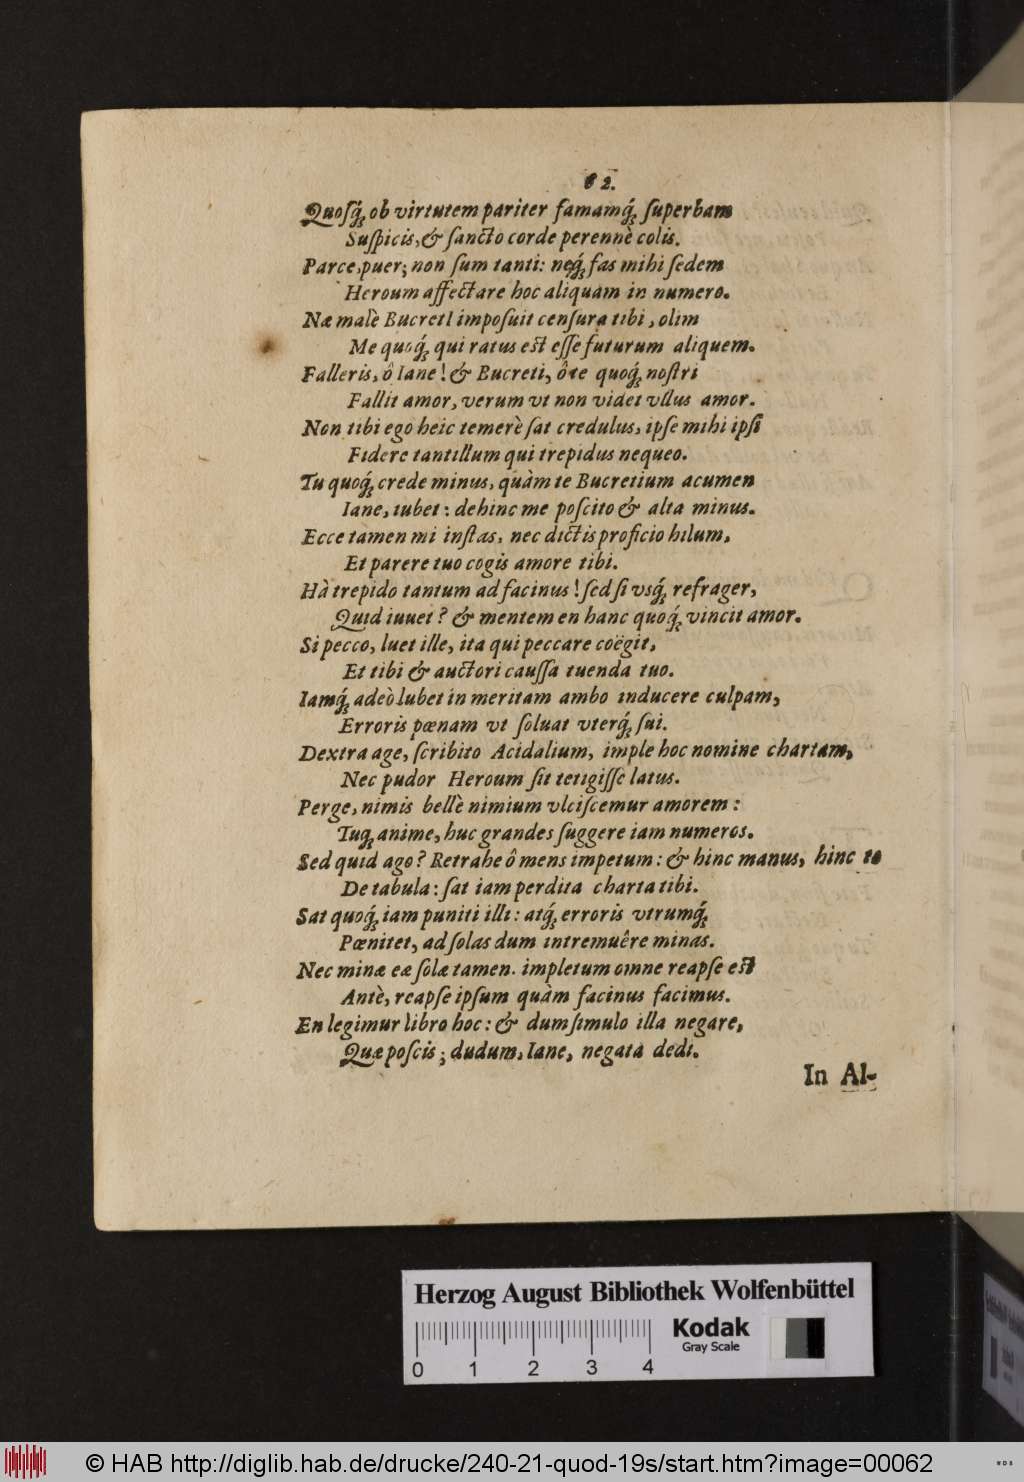 62.
Quoſq́ꝫ ob virtutem pariter famamq́ꝫ ſuperbam
Suſpicis, & ſancto corde perennè colis.
Parce, puer; non ſum tanti: neq́ꝫ fas mihi ſedem
Heroum affectare hoc aliquam in numero.
Næ malè BucretI impoſuit cenſura tibi, olim
Me quoq́ꝫ qui ratus eſt eſſe futurum aliquem.
Falleris, ô Iane! & Bucreti, ô te quoq́ꝫ noſtri
Fallit amor, verum vt non videt vllus amor.
Non tibi ego heic temerè ſat credulus, ipſe mihi ipſi
Fidere tantillum qui trepidus nequeo.
Tu quoq́ꝫ crede minus, quàm te Bucretium acumen
Iane, iubet: dehinc me poſcito & alta minus.
Ecce tamen mi inſtas, nec dictis proficio hilum,
Et parere tuo cogis amore tibi.
Hà trepido tantum ad facinus! ſed ſi vsq́ꝫ refrager,
Quid iuuet? & mentem en hanc quoq́ꝫ vincit amor.
Si pecco, luet ille, ita qui peccare coëgit,
Et tibi & auctori cauſſa tuenda tuo.
Iamq́ꝫ adeò lubet in meritam ambo inducere culpam,
Erroris pœnam vt ſoluat vterq́ꝫ ſui.
Dextra age, ſcribito Acidalium, imple hoc nomine chartam,
Nec pudor Heroum ſit tetigiſſe latus.
Perge, nimis bellè nimium vlciſcemur amorem:
Tuqꝫ anime, huc grandes ſuggere iam numeros.
Sed quid ago? Retrahe ô mens impetum: & hinc manus, hinc te
De tabula: ſat iam perdita charta tibi.
Sat quoq́ꝫ iam puniti illi: atq́ꝫ erroris vtrumq́ꝫ
Pœnitet, ad ſolas dum intremuêre minas.
Nec minæ eæ ſolæ tamen. impletum omne reapſe eſt
Antè, reapſe ipſum quàm facinus facimus.
En legimur libro hoc: & dum ſimulo illa negare,
Quæ poſcis; dudum, Iane, negata dedi.
In Al-
Herzog August Bibliothek Wolfenbüttel
Kodak
Gray Scale
0 1 2 3 4
© HAB http://diglib.hab.de/drucke/240-21-quod-19s/start.htm?image=00062